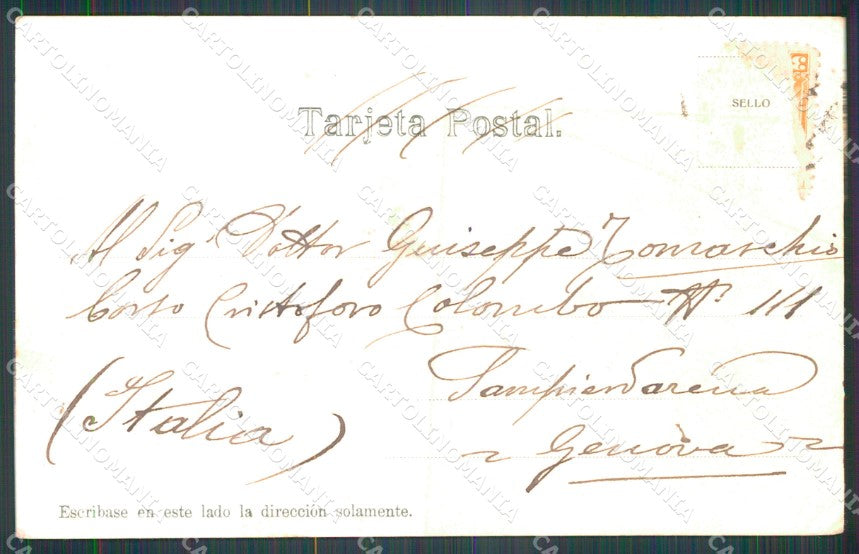 Tarjeta Postal.
SELLO
Al Sig. Dottor Guiseppe Tomarchio
Corso Cristoforo Colombo N° 111
Sampierdarena
(Italia)
~ Genova ~
Escribase en este lado la dirección solamente.
CARTOLINOMANIA